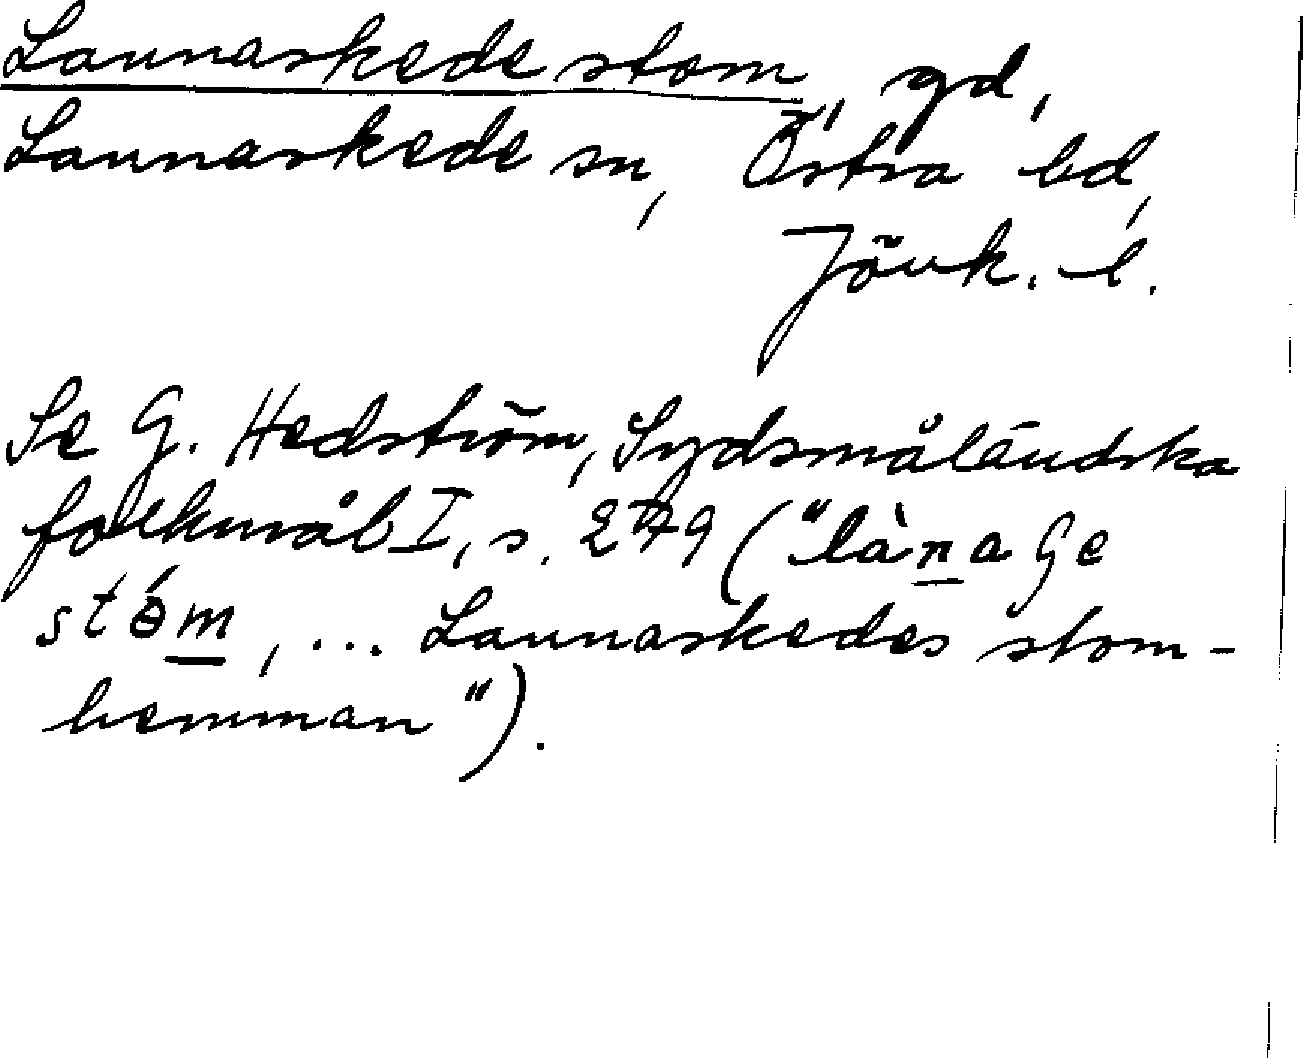 Lannaskede stom, gd,
Lannaskede sn, Östra hd,
Jönk. l.
Se G. Hedström, Sydsmåländska
folkmål I, s. 279 ("làna
stóm, ... Lannaskedes stom-
hemman").